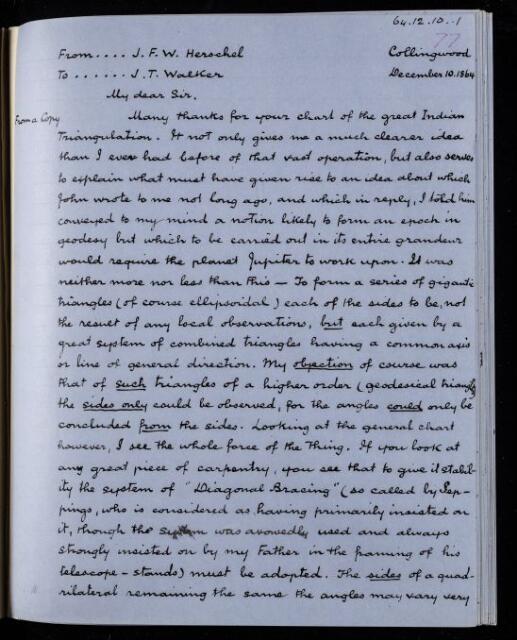 64.12.10.-1
77
From.... J. F. W. Herschel Collingwood
To...... J. T. Walker December 10. 1864
My dear Sir.
From a Copy
Many thanks for your chart of the great Indian
Triangulation. It not only gives me a much clearer idea
than I ever had before of that vast operation, but also serves
to explain what must have given rise to an idea about which
John wrote to me not long ago, and which in reply, I told him
conveyed to my mind a notion likely to form an epoch in
geodesy but which to be carried out in its entire grandeur
would require the planet Jupiter to work upon. It was
neither more nor less than this — To form a series of gigantic
triangles (of course ellipsoidal) each of the sides to be, not
the result of any local observations, but each given by a
great system of combined triangles having a common axis
or line of general direction. My objection of course was
that of such triangles of a higher order (geodesical triangles)
the sides only could be observed, for the angles could only be
concluded from the sides. Looking at the general chart
however, I see the whole force of the thing. If you look at
any great piece of carpentry, you see that to give it stabil-
ity the system of "Diagonal Bracing" (so called by Sep-
pings, who is considered as having primarily insisted on
it, though the system was avowedly used and always
strongly insisted on by my Father in the framing of his
telescope-stands) must be adopted. The sides of a quad-
rilateral remaining the same the angles may vary very